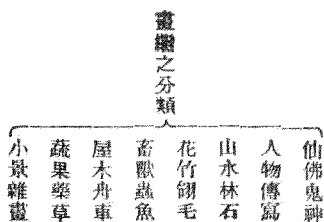 畫繼之分類
仙佛鬼神
人物傳寫
山水林石
花竹翎毛
畜獸蟲魚
屋木舟車
蔬果藥草
小景雜畫